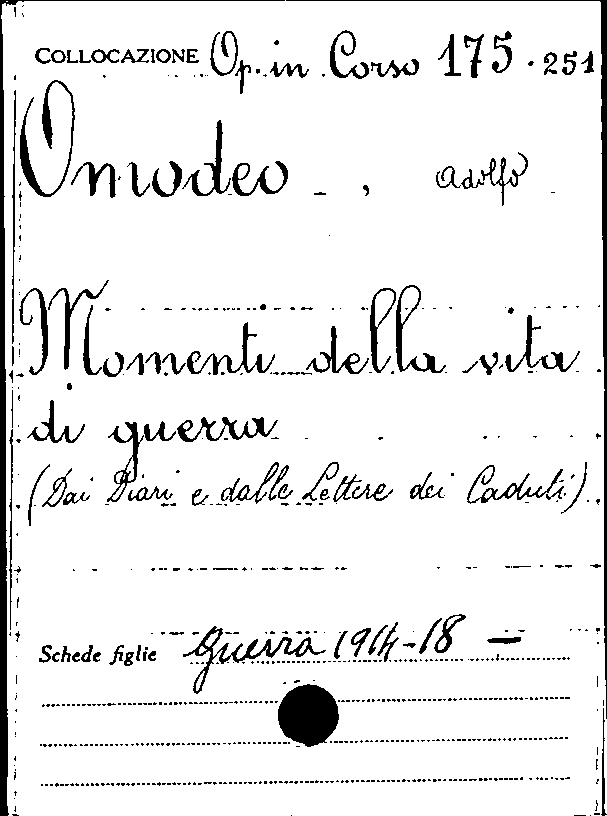 COLLOCAZIONE Op. in Corso 175.251
Omodeo, Adolfo
Momenti della vita
di guerra
(Dai Diari e dalle Lettere dei Caduti)
Schede figlie Guerra 1914-18 —